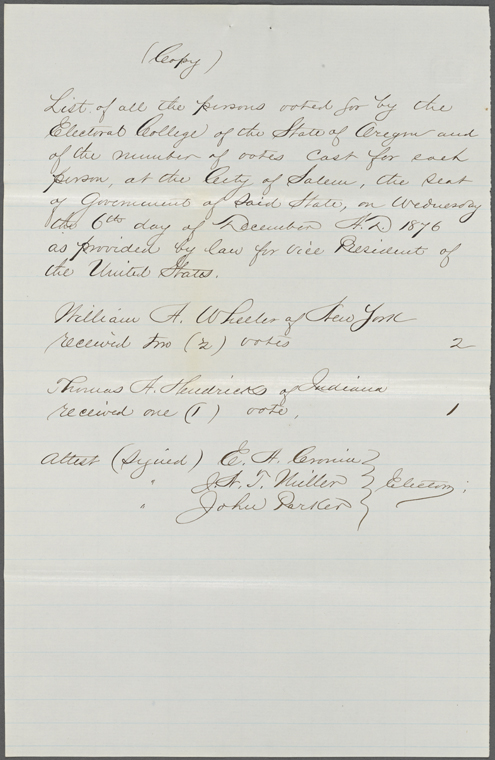 (Copy)
List of all the persons voted for by the
Electoral College of the State of Oregon and
of the number of votes cast for each
person, at the City of Salem, the seat
of Government of said State, on Wednesday
the 6th day of December A.D 1876
as provided by law for Vice President of
the United States.
William A. Wheeler of New York
received two (2) votes 2
Thomas A. Hendricks of Indiana
received one (1) vote, 1
Attest (Signed) E. A. Cronin
" J. N. T. Miller } Electors
" John Parker